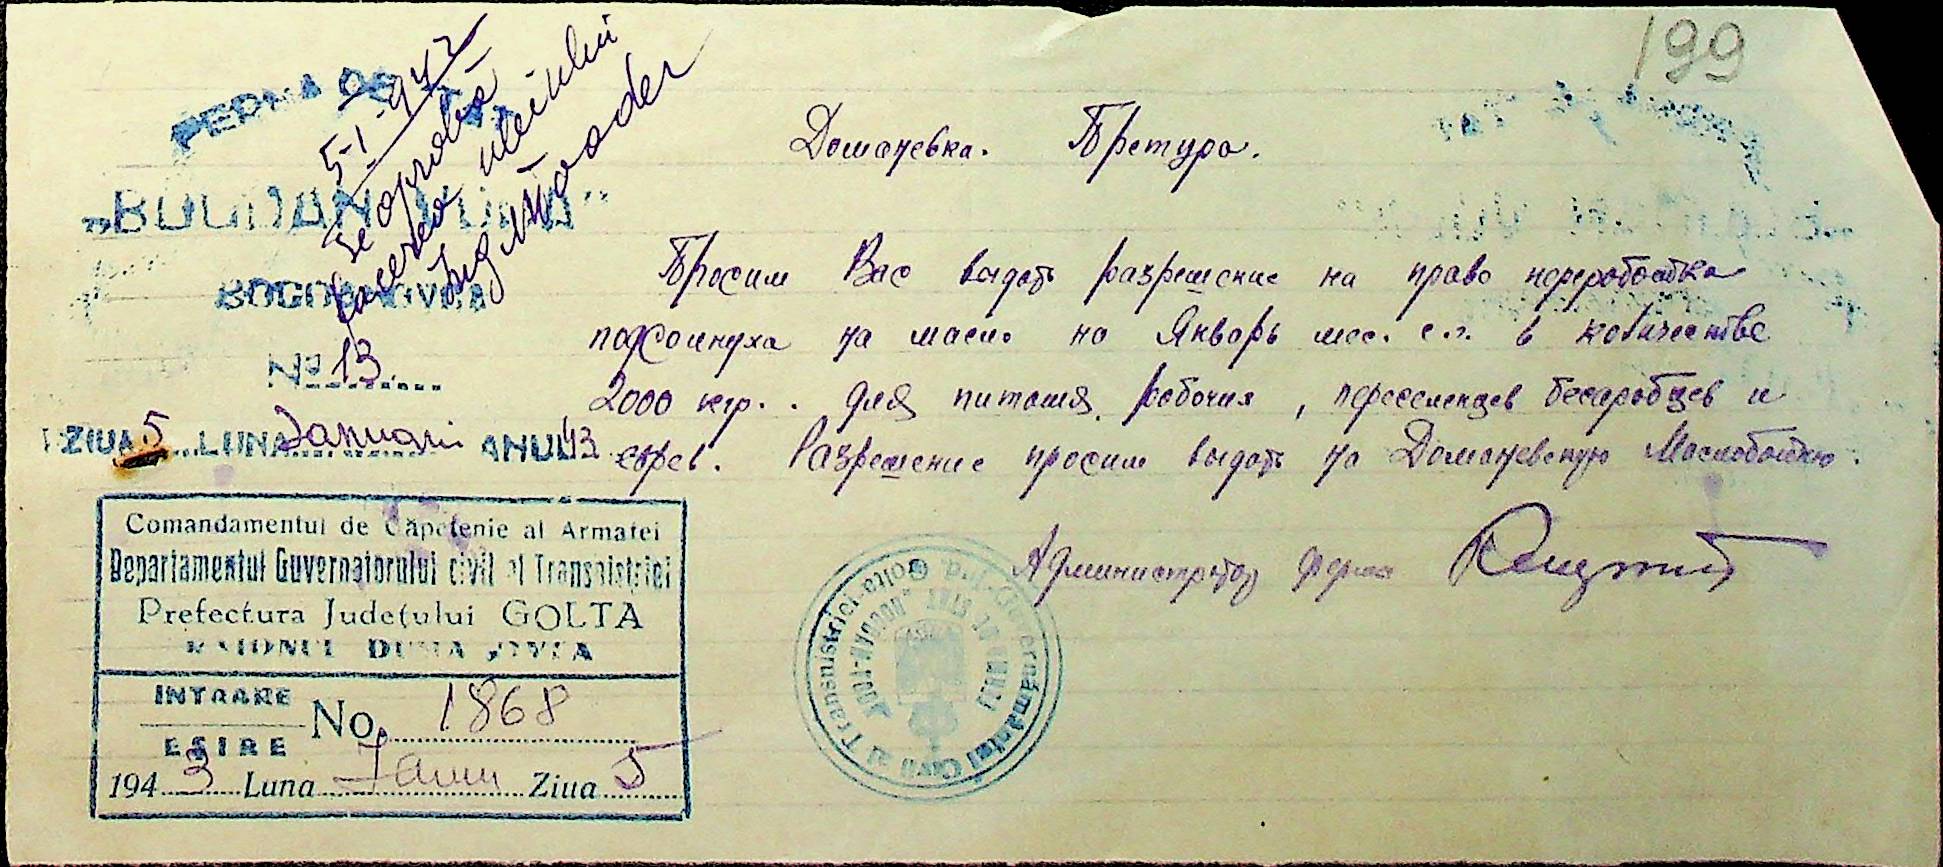 199
5-I-943
Se aprobă
facerea uleiului
FERMA DE STAT
„BUGMAN VIKA"
BOGDANOVCA
№ 13
ZIUA 5 LUNA Januari ANUL 43
Домачевка. Претура.
Просим Вас выдать разрешение на право переработка
подсолнуха на масло на Январь мес. с.г. в количестве
2000 кгр. для питания рабочия, переселенцев бесарабцев и
евреев. Разрешение просим выдать на Домачевскую Маслобойню.
Администратор ферма
Comandamentul de Căpetenie al Armatei
Departamentul Guvernatorului civil al Transnistriei
Prefectura Județului GOLTA
RAIONUL DUMANOVCA
INTRARE
EȘIRE
No. 1868
1943 Luna Janu Ziua 5
Guvernământul Civil al Transnistriei Jud. Golta